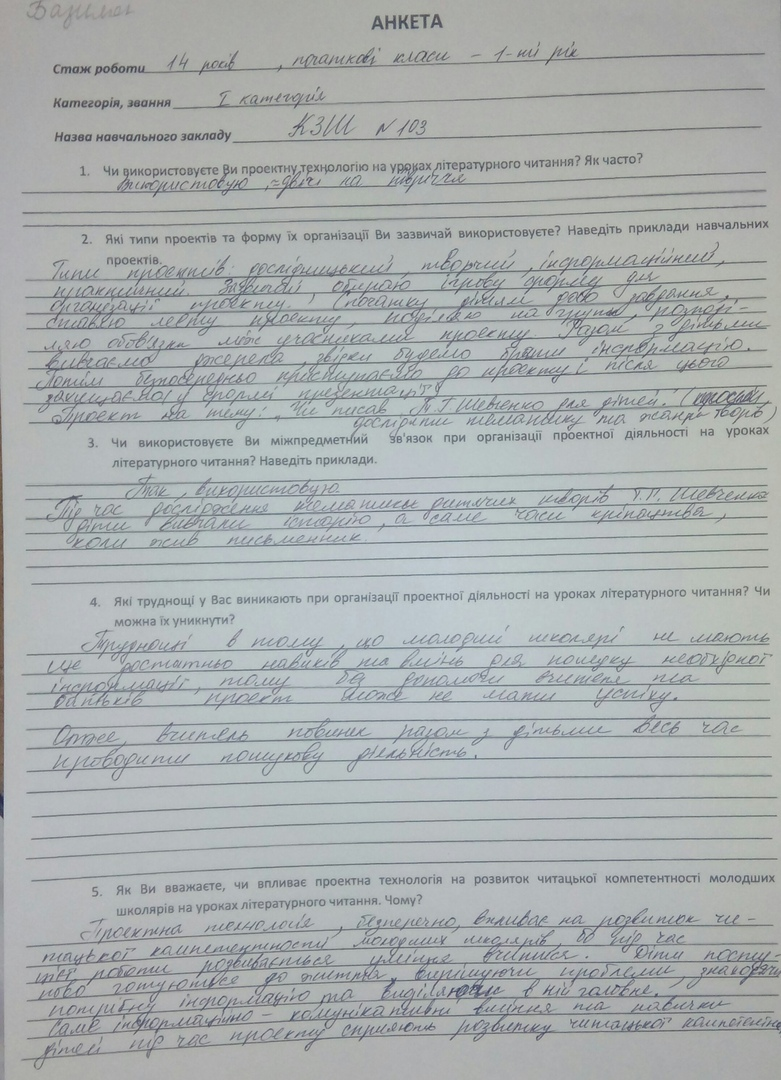 АНКЕТА
Стаж роботи 14 років , початкові класи – 1-ий рік
Категорія, звання І категорія
Назва навчального закладу КЗШ №103
1. Чи використовуєте Ви проектну технологію на уроках літературного читання? Як часто?
Використовую, ≈ двічі на півріччя
2. Які типи проектів та форму їх організації Ви зазвичай використовуєте? Наведіть приклади навчальних
проектів.
Типи проектів: дослідницький, творчий, інформаційний,
практичний. Зазвичай обираю ігрову форму для
організації проекту. Спочатку дітям даю завдання,
ставлю мету проекту, поділяю на групи, розподі-
ляю обовязки між учасниками проекту. Разом з дітьми
вивчаємо джерела, звідки будемо брати інформацію.
Потім безпосередньо приступаємо до проекту і після цього
захищаємо у формі презентації.
Проект на тему: "Чи писав Т.Г Шевченко для дітей?"
дослідити тематику та жанри творів)
3. Чи використовуєте Ви міжпредметний зв'язок при організації проектної діяльності на уроках
літературного читання? Наведіть приклади.
Так, використовую.
Під час дослідження тематики дитячих творів Т.Г. Шевченка
діти вивчали історію, а саме часи кріпацтва,
коли жив письменник.
4. Які труднощі у Вас виникають при організації проектної діяльності на уроках літературного читання? Чи
можна їх уникнути?
Труднощі в тому, що молодші школярі не мають
ще достатньо навиків та вмінь для пошуку необхідної
інформації, тому без допомоги вчителя та
батьків проект може не мати успіху.
Отже, вчитель повинен разом з дітьми весь час
проводити пошукову діяльність.
5. Як Ви вважаєте, чи впливає проектна технологія на розвиток читацької компетентності молодших
школярів на уроках літературного читання. Чому?
Проектна технологія, безперечно, впливає на розвиток чи-
тацької компетентності молодших школярів, бо під час
цієї роботи розвивається уміння вчитися. Діти посту-
пово готуються до життя, вирішуючи проблеми, знаходячи
потрібну інформацію та виділяючи в ній головне.
Саме інформаційно – комунікативні вміння та навички
дітей під час проекту сприяють розвитку читацької